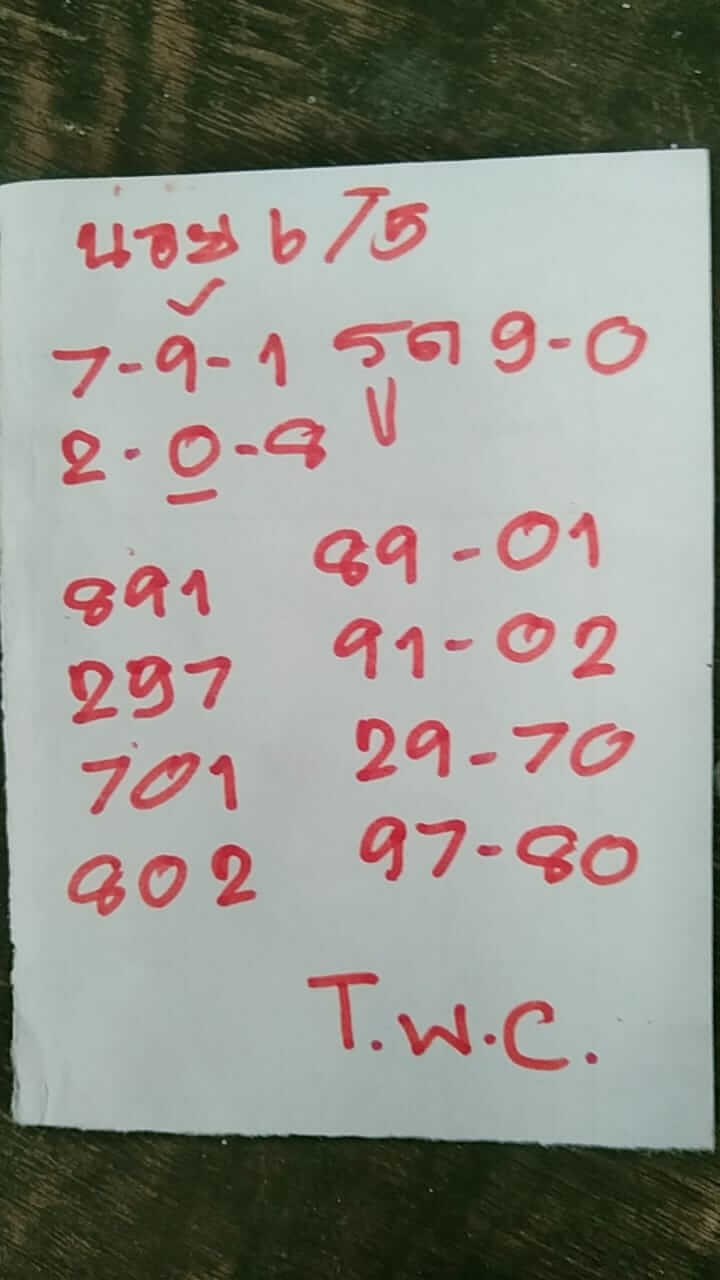 น้อย ๖/5
7-9-1 รูด 9-0
2-0-8
891 89-01
297 91-02
701 29-70
802 97-80
T.W.C.